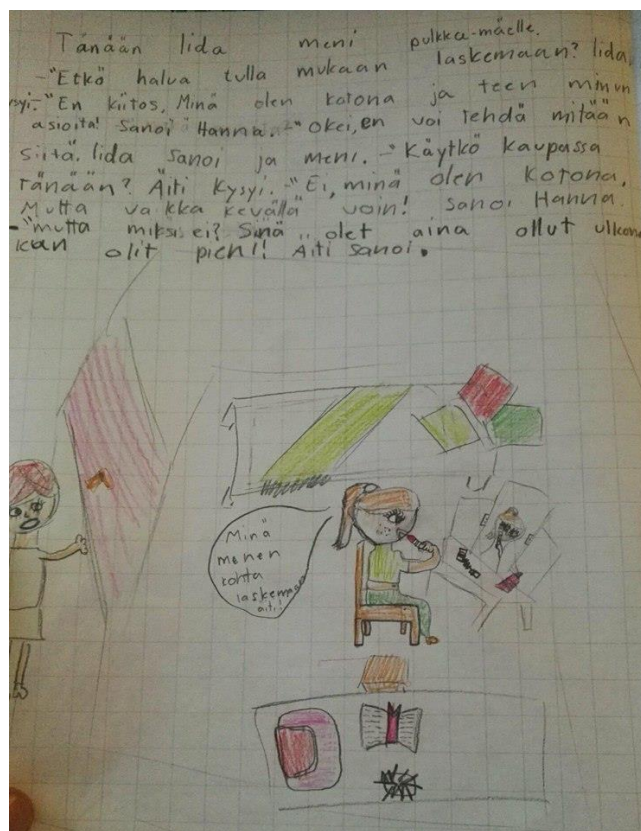 Tänään Iida meni pulkka-mäelle.
-"Etkö halua tulla mukaan laskemaan? Iida
kysyi.-"En kiitos, Minä olen kotona ja teen minun
asioita! Sanoi "Hanna.-"Okei, en voi tehdä mitään
siitä. Iida sanoi ja meni. -"Käytkö kaupassa
tänään? Äiti kysyi. -"Ei, minä olen kotona.
Mutta vaikka kevällä voin! sanoi Hanna.
-"mutta miksi ei? Sinä olet aina ollut ulkona
kun olit pieni! Äiti sanoi.
Minä
menen
kohta
laskemaan
äiti!